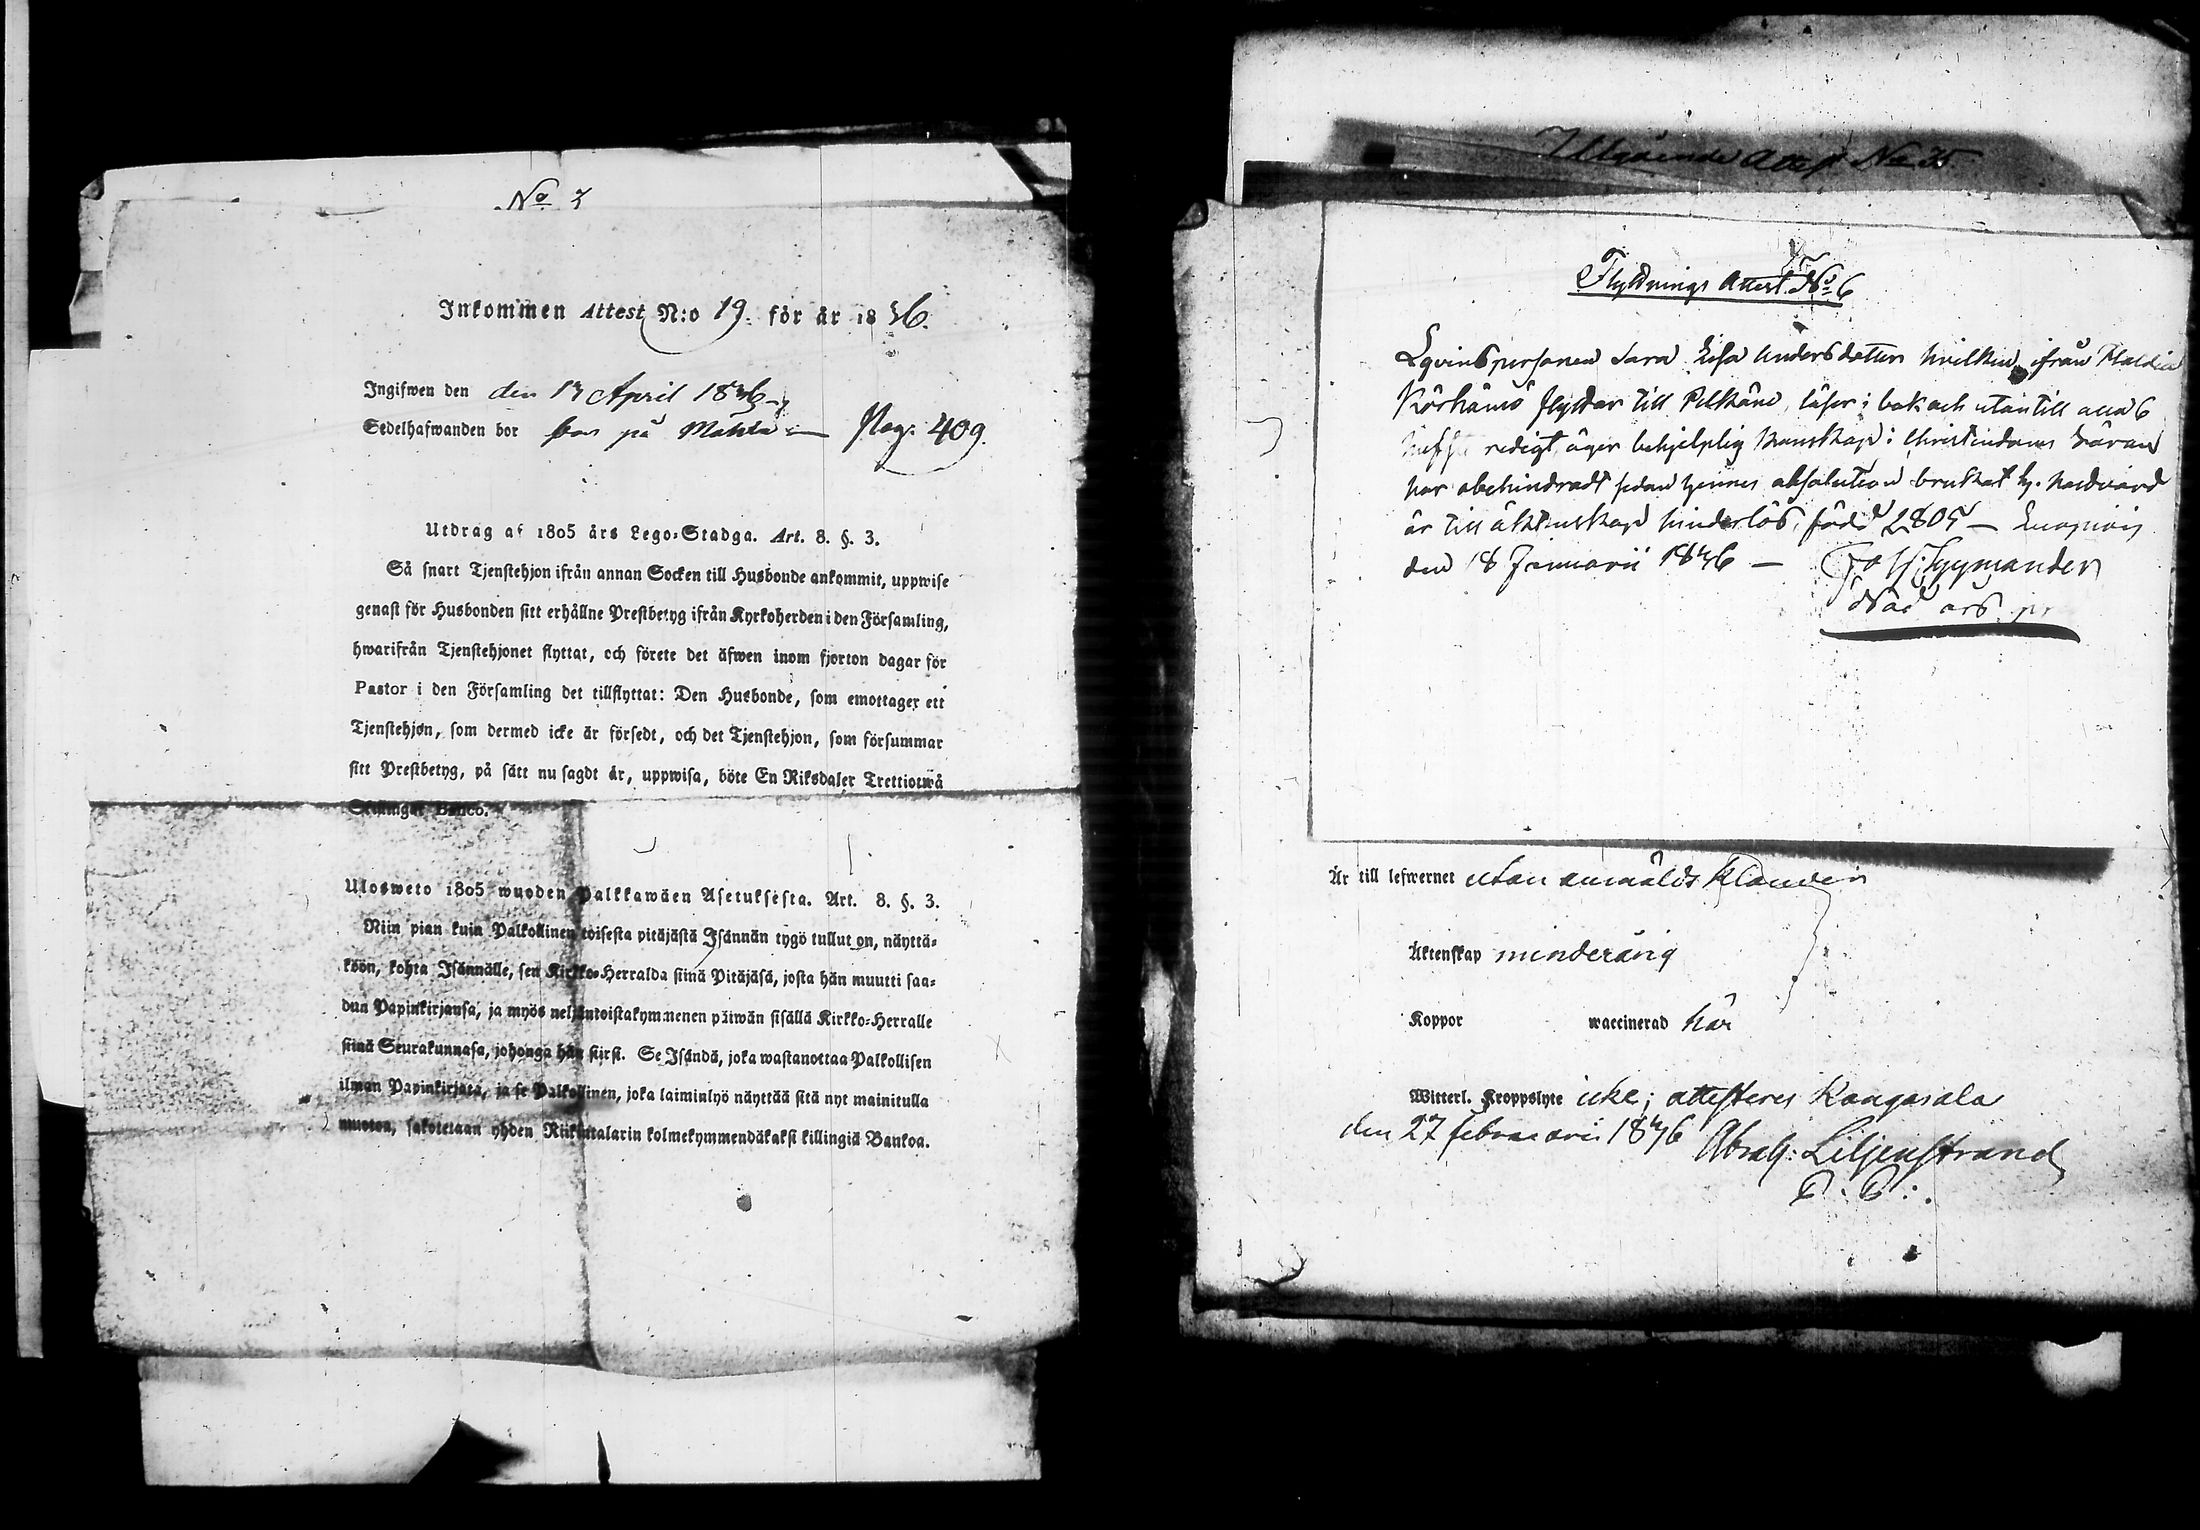 No 7
Inkommen Attest N:o 19. för år 1836.
Ingifwen den den 13 April 1836
Sedelhafwanden bor bor på Pag. 409.
Utdrag af 1805 års Lego-Stadga. Art. 8. §. 3.
Så snart Tjenstehjon ifrån annan Socken till Husbonde ankommit, uppwise
genast för Husbonden sitt erhållne Prestbetyg ifrån Kyrkoherden i den Församling,
hwarifrån Tjenstehjonet flyttat, och förete det äfwen inom fjorton dagar för
Pastor i den Församling det tillflyttat: Den Husbonde, som emottager ett
Tjenstehjon, som dermed icke är försedt, och det Tjenstehjon, som försummar
sitt Prestbetyg, på sätt nu sagdt är, uppwisa, böte En Riksdaler Trettiotwå
Skillingar Banco.
Ulosweto 1805 wuoden Palkkawäen Asetuksesta. Art. 8. §. 3.
Niin pian kuin Palkollinen toisesta pitäjästä Isännän tygö tullut on, näyttä-
köön, kohta Isännälle, sen Kirkko-Herralda siinä Pitäjäsä, josta hän muutti saa-
dun Papinkirjansa, ja myös neljäntoistakymmenen päiwän sisällä Kirkko-Herralle
siinä Seurakunnasa, johonga hän siirsi. Se Isändä, joka wastanottaa Palkollisen
ilman Papinkirjata, ja se Palkollinen, joka laiminlyö näyttää sitä nyt mainitulla
muoton, sakotetaan yhden Riikintalarin kolmekymmendäkaksi killingiä Bankoa.
Utgående Attest No 35
Flyttnings Attest No 6
Qvinspersonen Sara Lisa Andersdotter hvilken ifrån
flyttar till Pelkäne, läser i bok och utantill alla 6
redigt, äger behjelplig kunskap i Christendomens läran
har obehindradt sedan hennes absolution brukat h. nattvard
är till äktenskap hinderlös, född 1805 —
den 18 Januarii 1836 —
Är till lefwernet utan anmäldt klander
Äktenskap minderårig
Koppor waccinerad här
Witterl. Kroppslyte icke; attesteres Kangasala
den 27 februarii 1836 Abrah: Liljenstrand